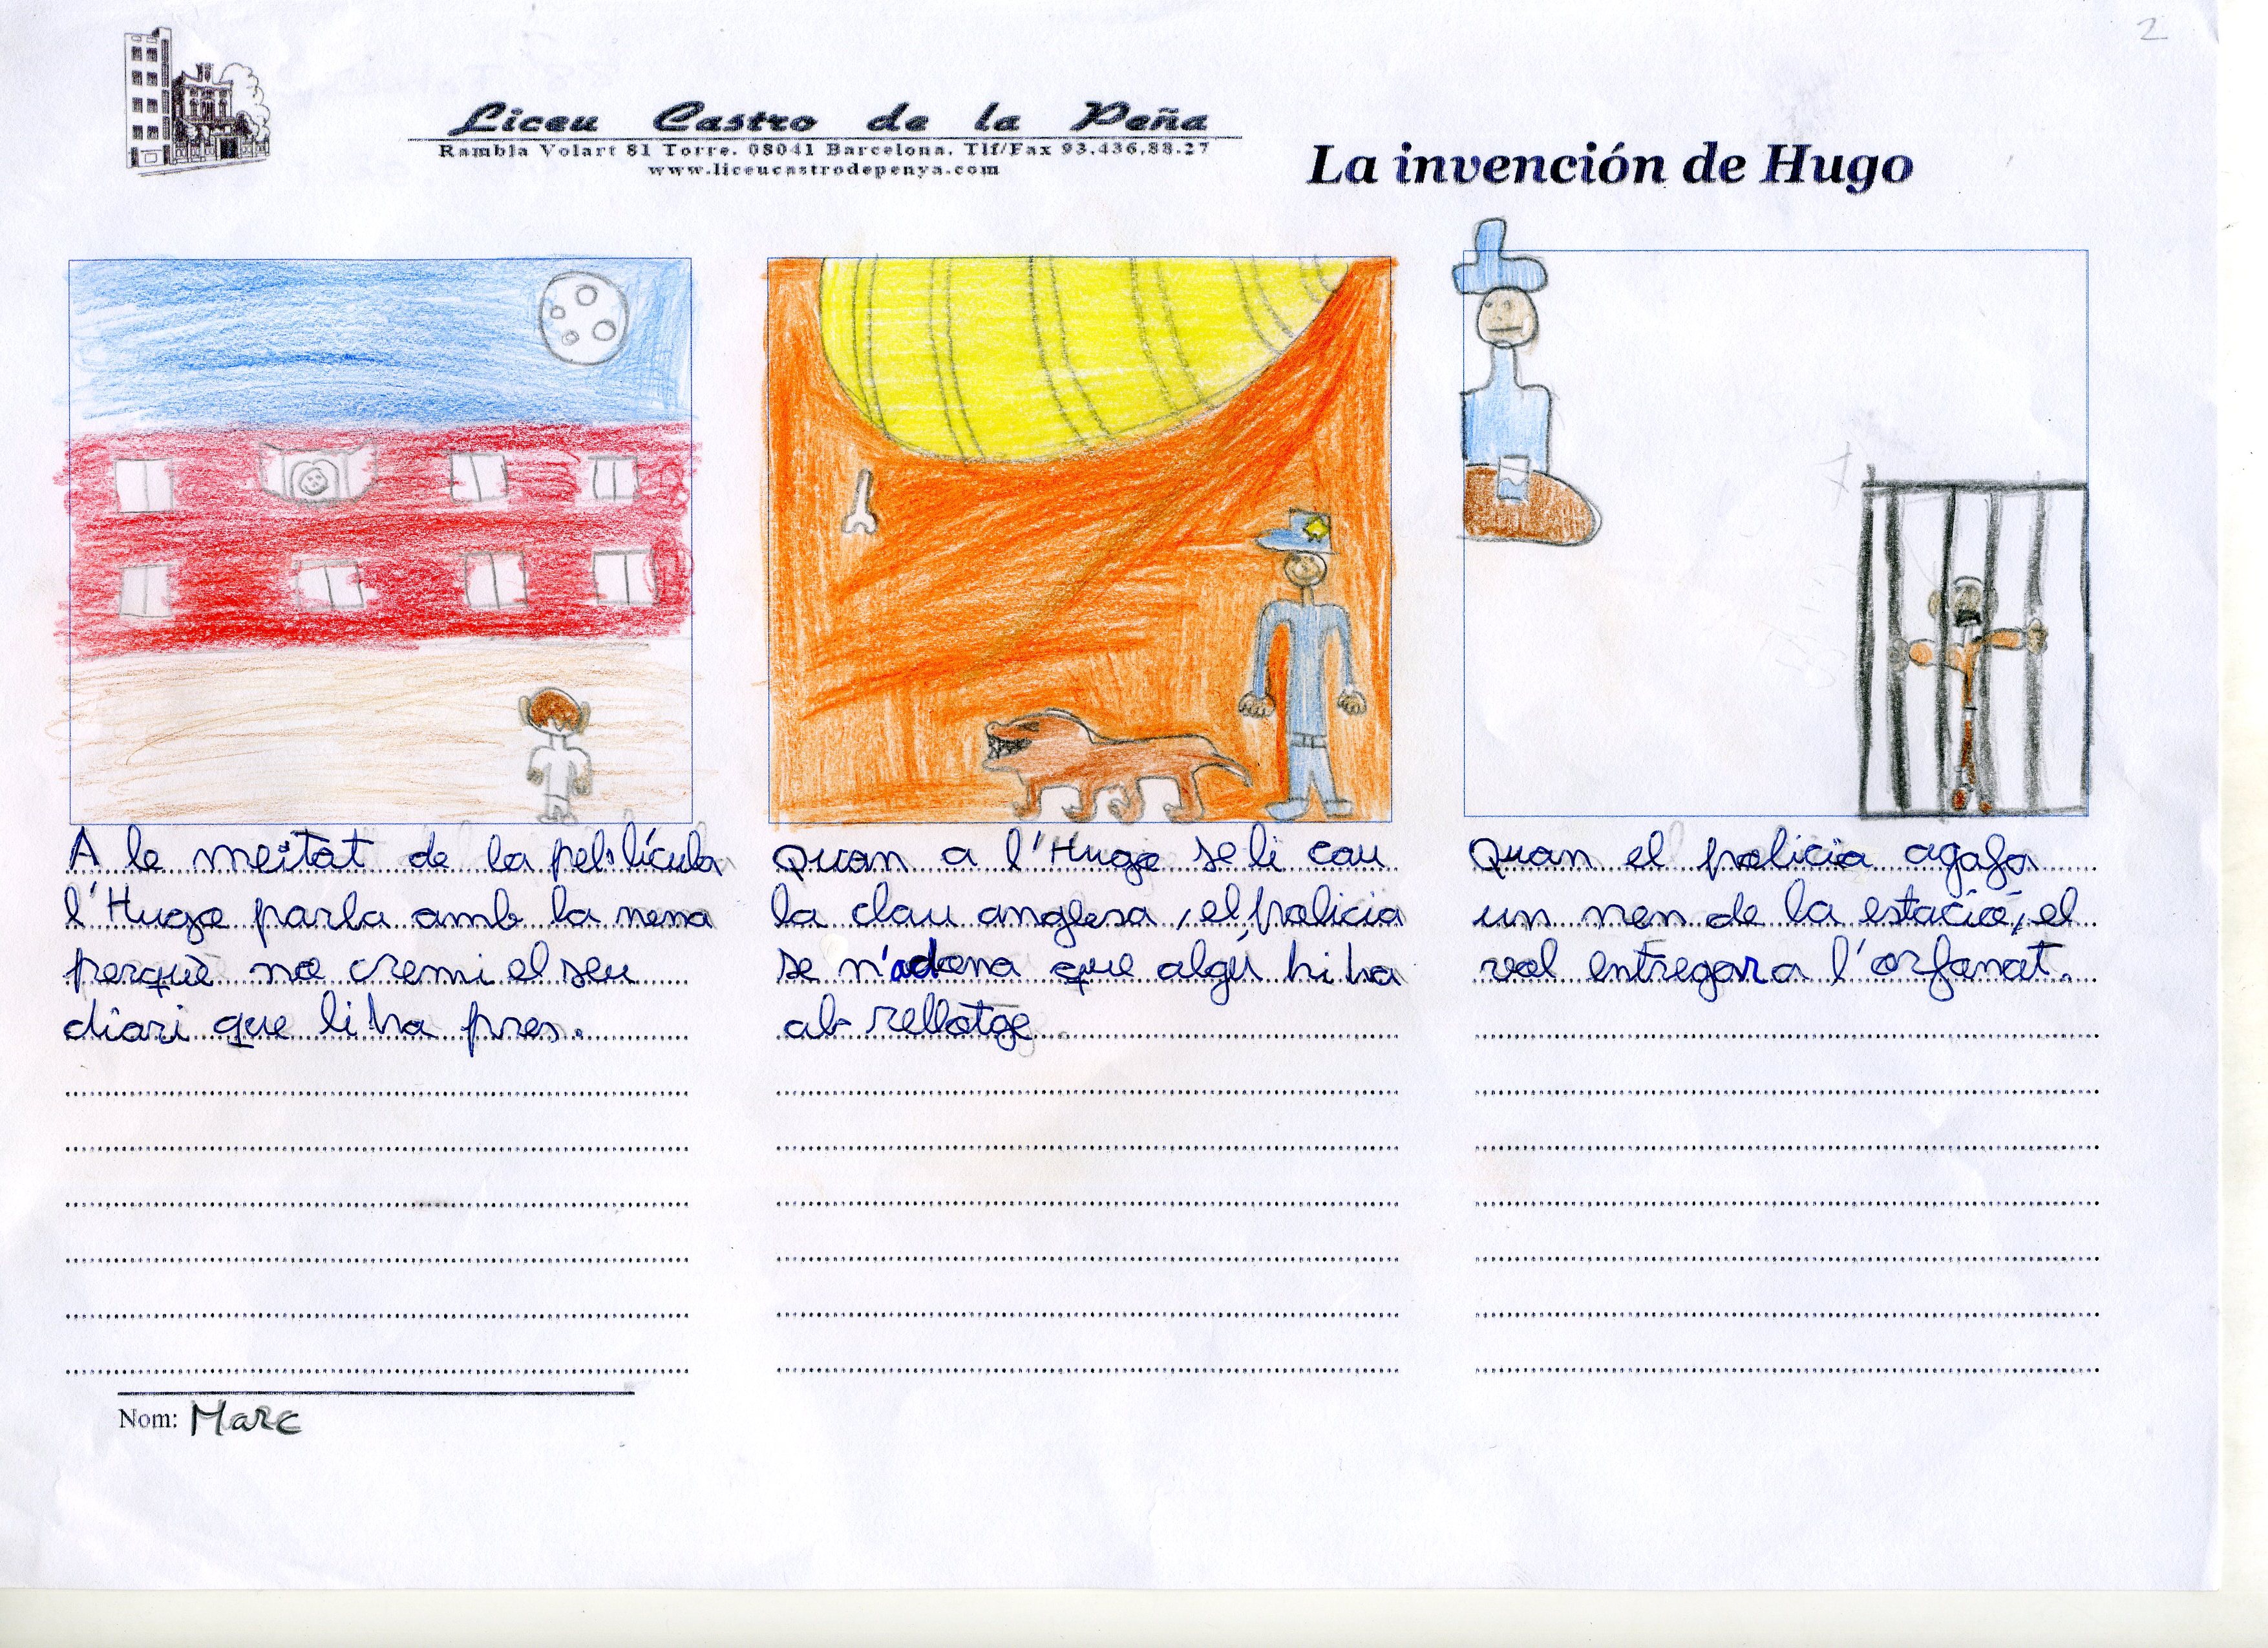 2
Liceu Castro de la Peña
Rambla Volart 81 Torre. 08041 Barcelona. Tlf/Fax 93.436.88.27
www.liceucastrodepenya.com
La invención de Hugo
A le meitat de la pel·lícula
l'Hugo parla amb la nena
perquè no cremi el seu
diari que li ha pres.
Quan a l'Hugo se li cau
la clau anglesa, el policia
se n'adona que algú hi ha
al rellotge.
Quan el policia agafa
un nen de la estació, el
vol entregar a l'orfanat.
Nom: Marc